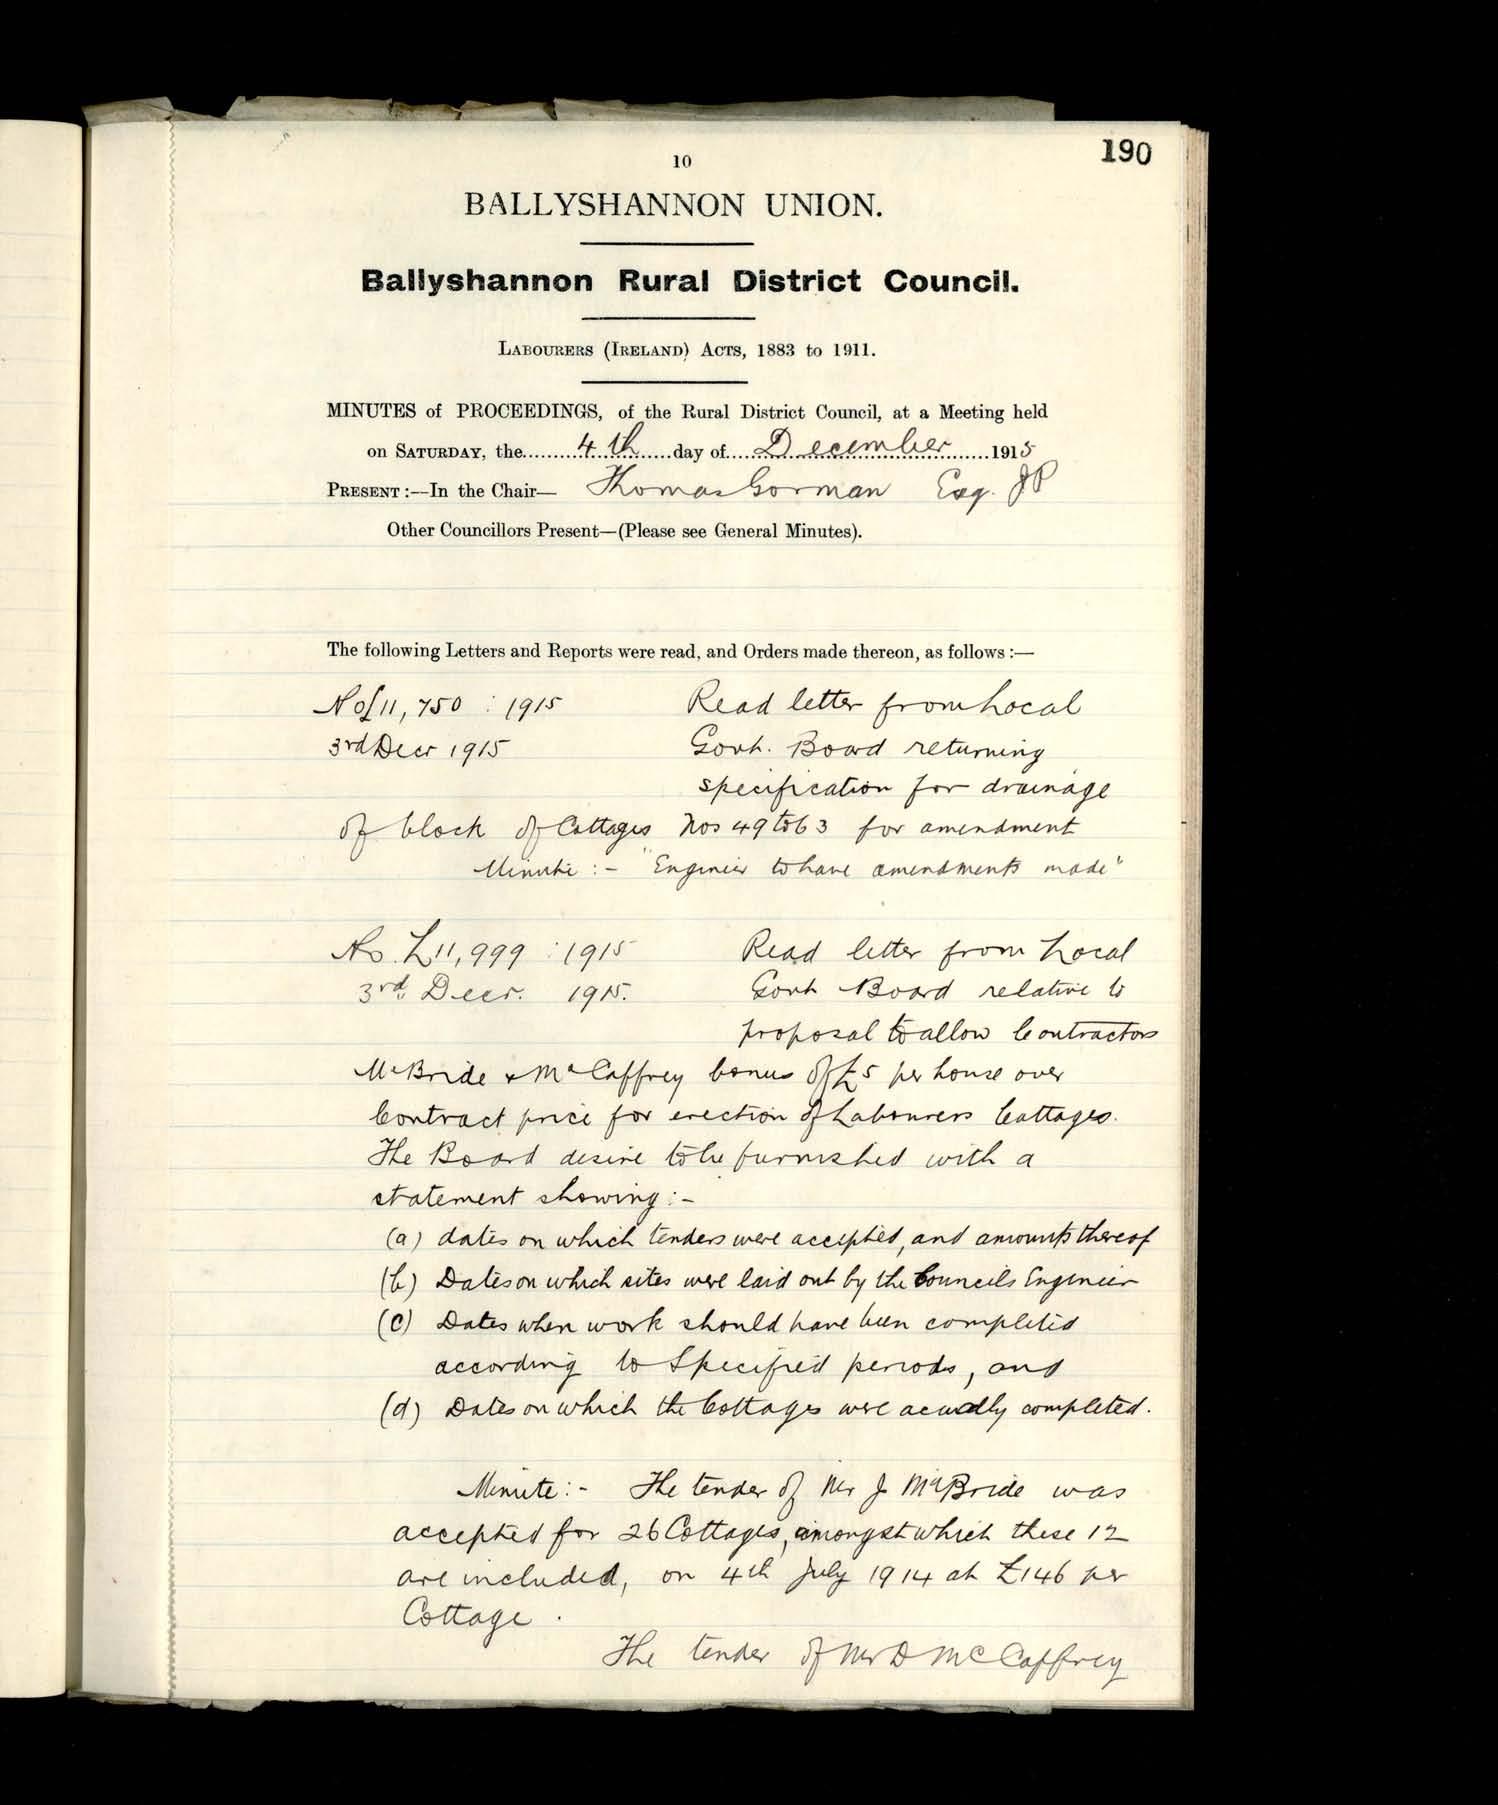 190
10
BALLYSHANNON UNION.
Ballyshannon Rural District Council.
LABOURERS (IRELAND) ACTS, 1883 to 1911.
MINUTES of PROCEEDINGS, of the Rural District Council, at a Meeting held
on SATURDAY, the 4th day of December 1915
PRESENT :—In the Chair— Thomas Gorman Esq. JP
Other Councillors Present—(Please see General Minutes).
The following Letters and Reports were read, and Orders made thereon, as follows :—
No L 11,750 : 1915 Read letter from Local
3rd Decr 1915 Govt. Board returning
specification for drainage
of block of Cottages Nos 49 to 63 for amendment
Minute :- "Engineer to have amendments made"
No. L 11,999 : 1915 Read letter from Local
3rd. Decr. 1915. Govt Board relative to
proposal to allow Contractors
McBride & McCaffrey bonus of £5 per house over
Contract price for erection of Labourers Cottages.
The Board desire to be furnished with a
statement showing :-
(a) dates on which tenders were accepted, and amounts thereof
(b) Dates on which sites were laid out by the Councils Engineer
(c) Dates when work should have been completed
according to Specified periods, and
(d) Dates on which the Cottages were acually completed.
Minute :- The tender of Mr J McBride was
accepted for 26 Cottages, amongst which these 12
are included, on 4th July 1914 at £146 per
Cottage.
The tender of Mr D McCaffrey